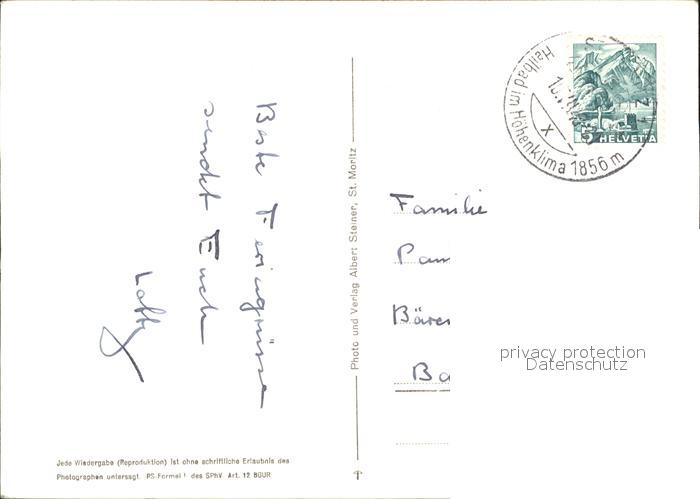 Beste Feriengrüsse
sendet Euch
Lotty
Photo und Verlag Albert Steiner, St. Moritz
Jede Wiedergabe (Reproduktion) ist ohne schriftliche Erlaubnis des
Photographen untersagt. PS-Formel des SPhV Art. 12 BGUR
Heilbad im Höhenklima 1856 m
X
5 HELVETIA
Familie
Bä
Ba
privacy protection
Datenschutz